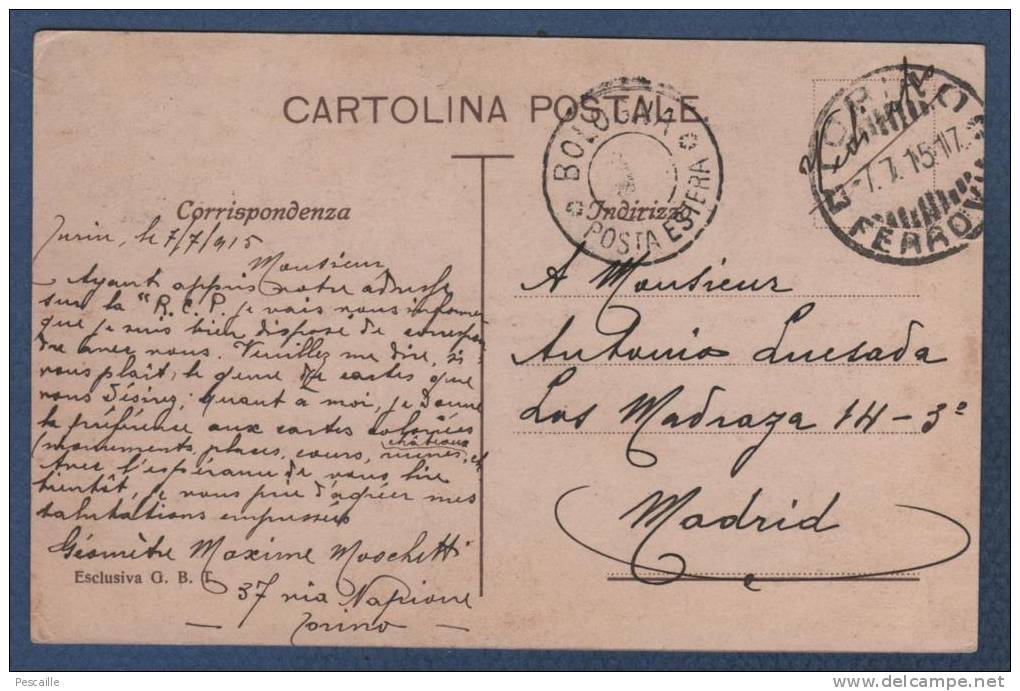 CARTOLINA POSTALE.
BOLOGNA
POSTA ESTERA
TORINO
-7.7.15-17
FERROVIA
Corrispondenza
Indirizzo
Turin, le 7/7/915
Monsieur
Ayant appris votre adresse
sur la "R.C.P. je vais vous informer
que je suis bien disposé de correspon
dre avec vous. Veuillez me dire, si
vous plaît, le genre de cartes que
vous désirez; quant à moi, je donne
la préférence aux cartes coloriées
(monuments, places, cours, châteaux
ruines, et
Avec l'espérance de vous lire
bientôt, je vous prie d'agréer mes
salutations empressées
Géomètre Maxime Moschetti
37 via Napione
— Torino —
Esclusiva G. B. T.
A Monsieur
Antonio Quesada
Los Madraza 14-3º
Madrid
Pescaille
http://www.delcampe.net